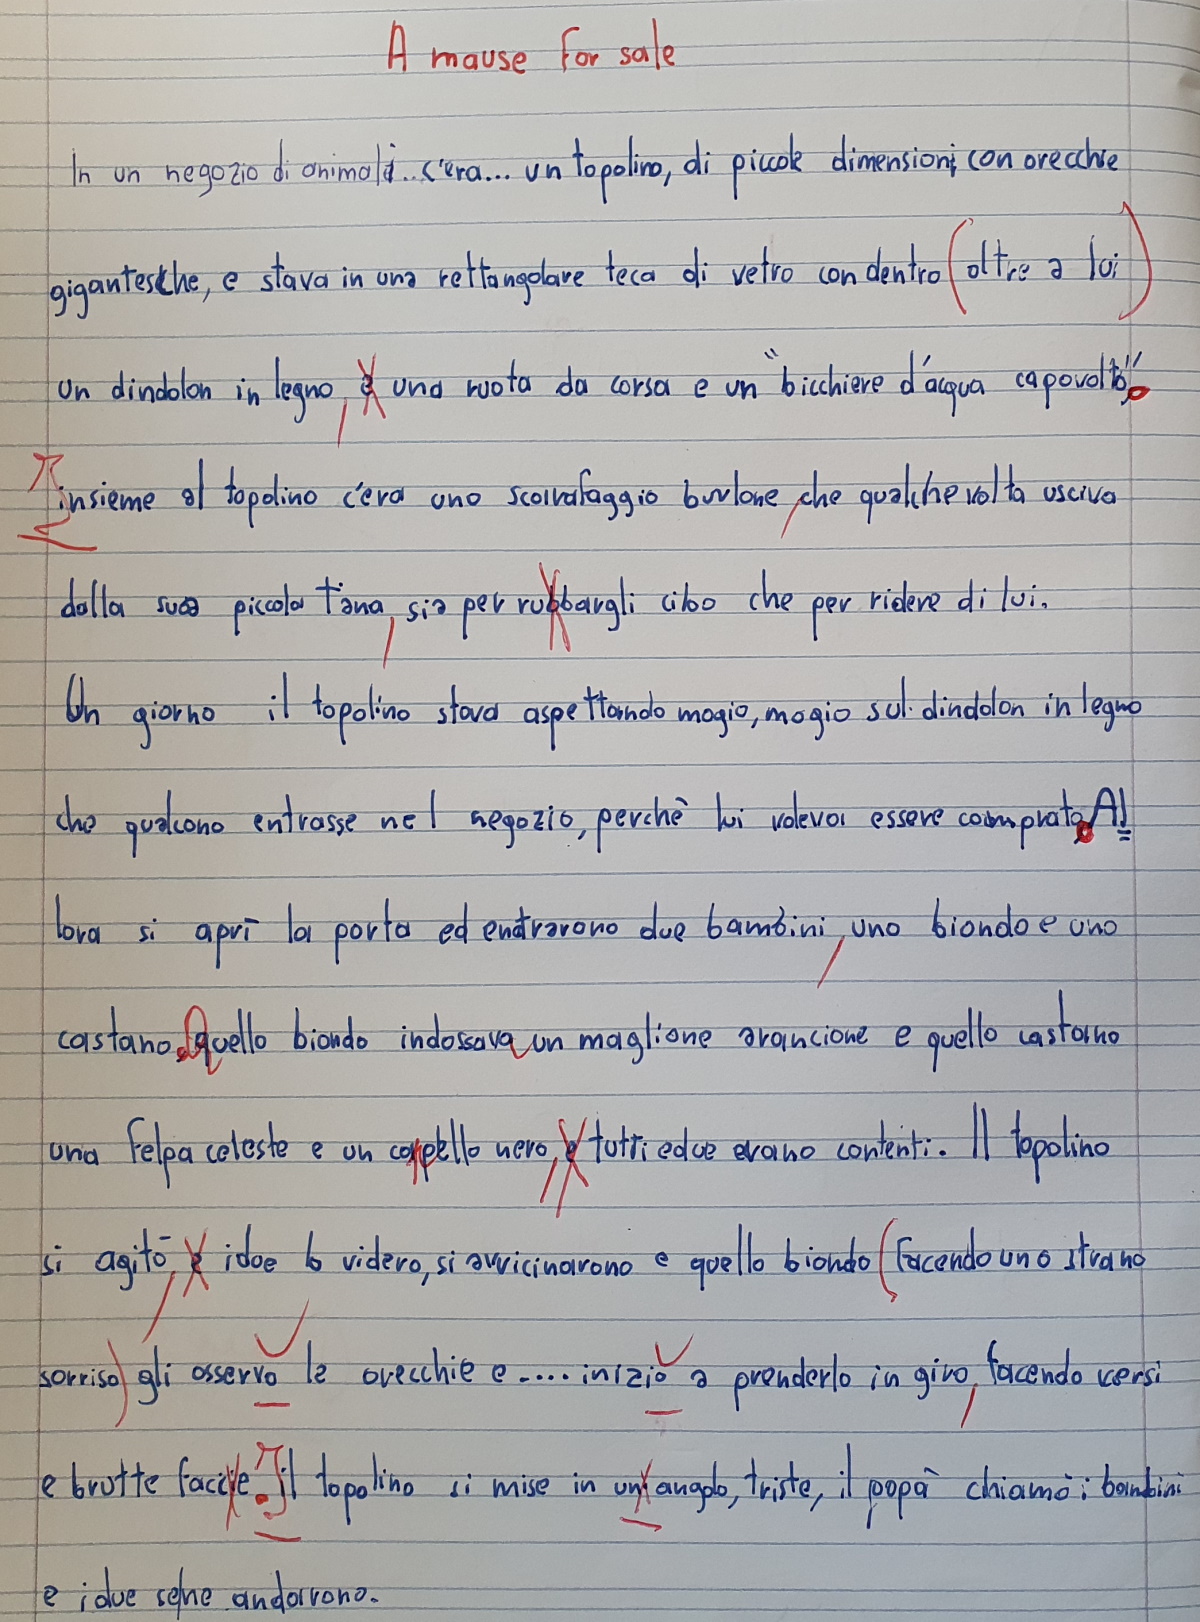 A mause for sale
In un negozio di animali.. c'era... un topolino, di piccole dimensioni, con orecchie
gigantesche, e stava in una rettangolare teca di vetro con dentro (oltre a lui)
un dindolon in legno, e una ruota da corsa e un "bicchiere d'acqua capovolto".
Insieme al topolino c'era uno scarafaggio burlone, che qualche volta usciva
dalla sua piccola tana, sia per rubbargli cibo che per ridere di lui.
Un giorno il topolino stava aspettando mogio, mogio sul dindolon in legno
che qualcuno entrasse nel negozio, perchè lui voleva essere comprato. Al
lora si aprì la porta ed entrarono due bambini, uno biondo e uno
castano. Quello biondo indossava un maglione arancione e quello castano
una felpa celeste e un cappello nero, e tutti e due erano contenti. Il topolino
si agitò, e i due lo videro, si avvicinarono e quello biondo (facendo uno strano
sorriso) gli osservo le orecchie e .... inizio a prenderlo in giro, facendo versi
e brutte faccie. Il topolino si mise in un' angolo, triste, il papà chiamò i bambini
e i due se ne andarono.